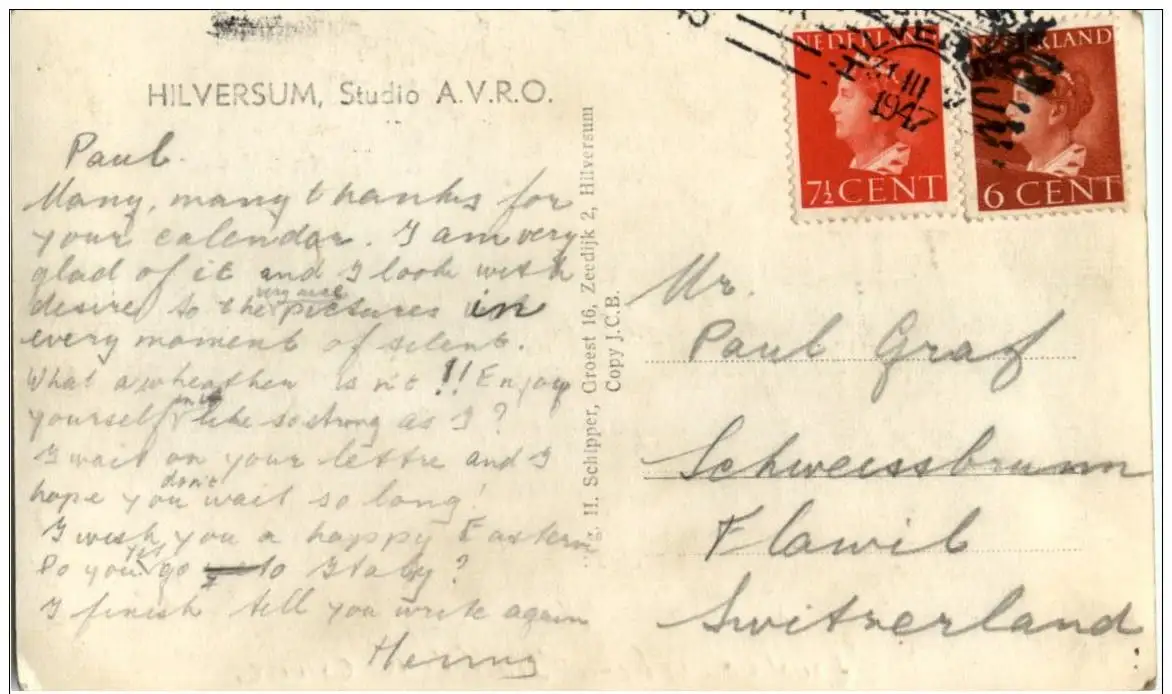 HILVERSUM, Studio A.V.R.O.
Paul.
Many, many thanks for
your calendar. I am very
glad of it and I look with
desire to the very nice pictures in
every moment of silent.
What a wheather is n't !! Enjoy
yourself in it like so strong as I?
I wait on your lettre and I
hope you don't wait so long!
I wish you a happy Eastern
Do you yet go to Italy?
I finish till you write again
Henny
H. Schipper, Groest 16, Zeedijk 2, Hilversum
Copy J.C.B.
NEDERLAND
7½ CENT
NEDERLAND
6 CENT
HILVERSUM
III
1947
Mr.
Paul Graf
Schweissbrunn
Flawil
Switzerland